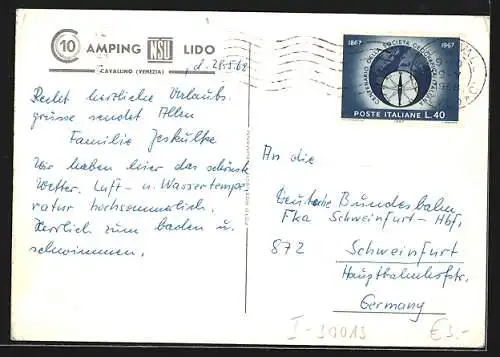 C 10 AMPING NSU LIDO
CAVALLINO (VENEZIA)
d. 28.5.68
Recht herzliche Urlaubs-
grüsse sendet Allen
Familie Jeskulke
Wir haben hier das schönste
Wetter. Luft- u. Wassertempe
ratur hochsommerlich.
Herrlich zum baden u.
schwimmen.
1867 1967
CENTENARIO DELLA SOCIETÀ GEOGRAFICA ITALIANA
POSTE ITALIANE L.40
An die
Deutsche Bundesbahn
Fka Schweinfurt-Hbf.
872 Schweinfurt
Hauptbahnhofstr.
Germany
I-39013 €3.-